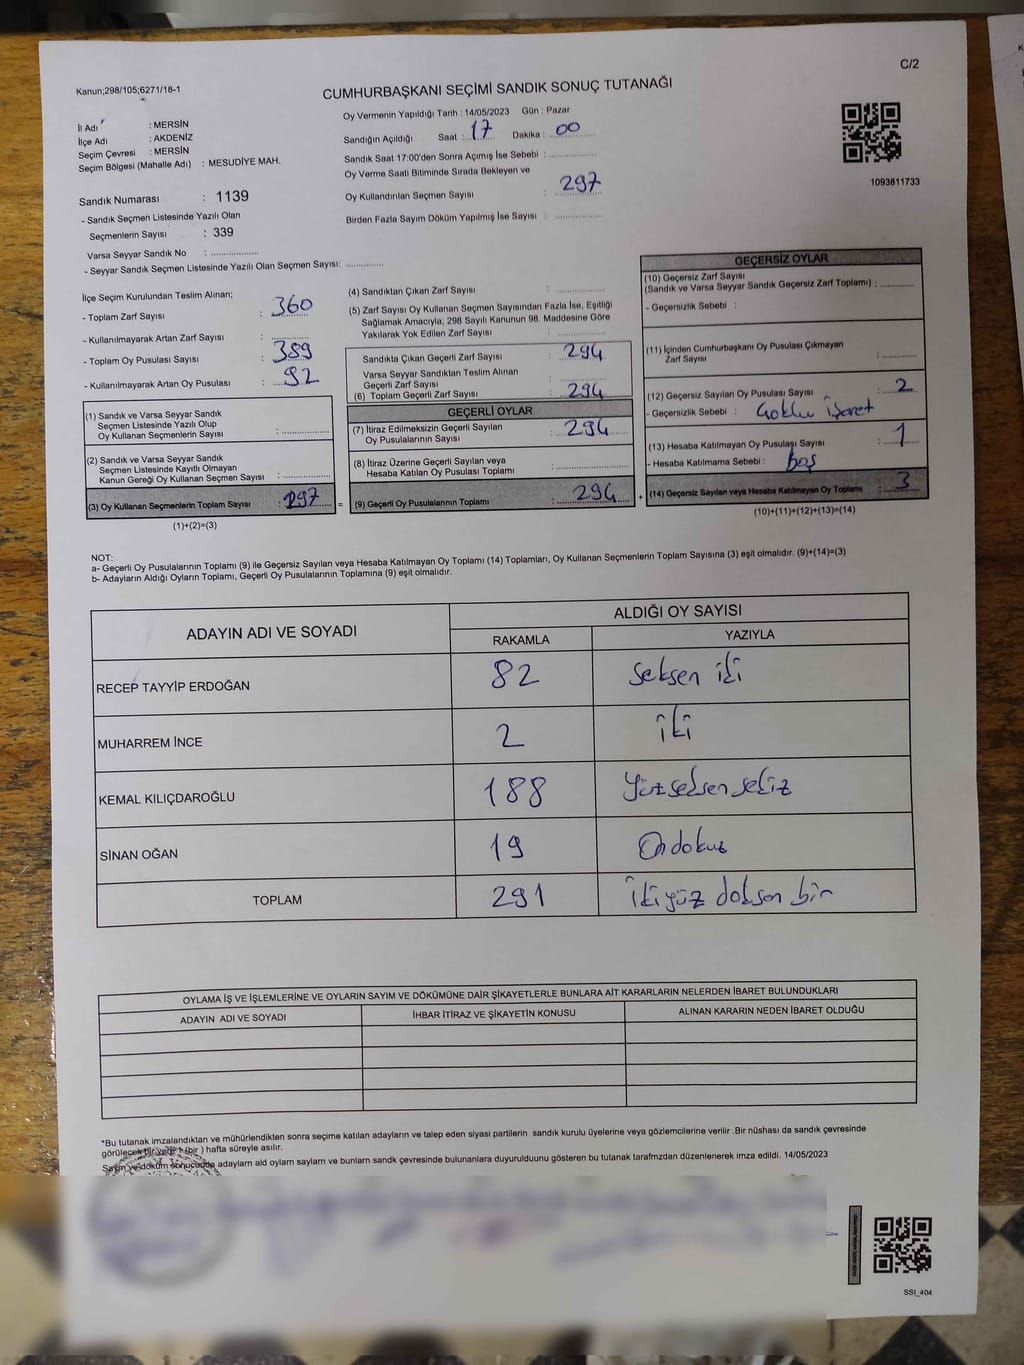 C/2
Kanun;298/105;6271/18-1
CUMHURBAŞKANI SEÇİMİ SANDIK SONUÇ TUTANAĞI
İl Adı : MERSİN
İlçe Adı : AKDENİZ
Seçim Çevresi : MERSİN
Seçim Bölgesi (Mahalle Adı) : MESUDİYE MAH.
Sandık Numarası : 1139
- Sandık Seçmen Listesinde Yazılı Olan
Seçmenlerin Sayısı : 339
Varsa Seyyar Sandık No : ..................
- Seyyar Sandık Seçmen Listesinde Yazılı Olan Seçmen Sayısı: ..............
Oy Vermenin Yapıldığı Tarih : 14/05/2023 Gün : Pazar
Sandığın Açıldığı Saat : 17 Dakika : 00
Sandık Saat 17:00'den Sonra Açımış İse Sebebi : ..................
Oy Verme Saati Bitiminde Sırada Bekleyen ve
Oy Kullandırılan Seçmen Sayısı : 297
Birden Fazla Sayım Döküm Yapılmış İse Sayısı : ..................
1093811733
İlçe Seçim Kurulundan Teslim Alınan;
- Toplam Zarf Sayısı : 360
- Kullanılmayarak Artan Zarf Sayısı : ..............
- Toplam Oy Pusulası Sayısı : 389
- Kullanılmayarak Artan Oy Pusulası : 92
(1) Sandık ve Varsa Seyyar Sandık
Seçmen Listesinde Yazılı Olup
Oy Kullanan Seçmenlerin Sayısı : ..............
(2) Sandık ve Varsa Seyyar Sandık
Seçmen Listesinde Kayıtlı Olmayan
Kanun Gereği Oy Kullanan Seçmen Sayısı : ..............
(3) Oy Kullanan Seçmenlerin Toplam Sayısı : 297
(1)+(2)=(3)
=
(4) Sandıktan Çıkan Zarf Sayısı : ..................
(5) Zarf Sayısı Oy Kullanan Seçmen Sayısından Fazla İse, Eşitliği
Sağlamak Amacıyla; 298 Sayılı Kanunun 98. Maddesine Göre
Yakılarak Yok Edilen Zarf Sayısı : ..................
Sandıkta Çıkan Geçerli Zarf Sayısı : 294
Varsa Seyyar Sandıktan Teslim Alınan
Geçerli Zarf Sayısı : ..................
(6) Toplam Geçerli Zarf Sayısı : 294
GEÇERLİ OYLAR
(7) İtiraz Edilmeksizin Geçerli Sayılan
Oy Pusulalarının Sayısı : 294
(8) İtiraz Üzerine Geçerli Sayılan veya
Hesaba Katılan Oy Pusulası Toplamı : ..................
(9) Geçerli Oy Pusulalarının Toplamı : 294
+
GEÇERSİZ OYLAR
(10) Geçersiz Zarf Sayısı
(Sandık ve Varsa Seyyar Sandık Geçersiz Zarf Toplamı) : ............
- Geçersizlik Sebebi :
(11) İçinden Cumhurbaşkanı Oy Pusulası Çıkmayan
Zarf Sayısı : ............
(12) Geçersiz Sayılan Oy Pusulası Sayısı : 2
- Geçersizlik Sebebi : Çoklu İşaret
(13) Hesaba Katılmayan Oy Pusulası Sayısı : 1
- Hesaba Katılmama Sebebi : boş
(14) Geçersiz Sayılan veya Hesaba Katılmayan Oy Toplamı : 3
(10)+(11)+(12)+(13)=(14)
NOT:
a- Geçerli Oy Pusulalarının Toplamı (9) ile Geçersiz Sayılan veya Hesaba Katılmayan Oy Toplamı (14) Toplamları, Oy Kullanan Seçmenlerin Toplam Sayısına (3) eşit olmalıdır. (9)+(14)=(3)
b- Adayların Aldığı Oyların Toplamı, Geçerli Oy Pusulalarının Toplamına (9) eşit olmalıdır.
ADAYIN ADI VE SOYADI ALDIĞI OY SAYISI
RAKAMLA YAZIYLA
RECEP TAYYİP ERDOĞAN 82 Seksen iki
MUHARREM İNCE 2 iki
KEMAL KILIÇDAROĞLU 188 Yüzseksensekiz
SİNAN OĞAN 19 Ondokuz
TOPLAM 291 İkiyüz doksan bir
OYLAMA İŞ VE İŞLEMLERİNE VE OYLARIN SAYIM VE DÖKÜMÜNE DAİR ŞİKAYETLERLE BUNLARA AİT KARARLARIN NELERDEN İBARET BULUNDUKLARI
ADAYIN ADI VE SOYADI İHBAR İTİRAZ VE ŞİKAYETİN KONUSU ALINAN KARARIN NEDEN İBARET OLDUĞU
*Bu tutanak imzalandıktan ve mühürlendikten sonra seçime katılan adayların ve talep eden siyasi partilerin sandık kurulu üyelerine veya gözlemcilerine verilir .Bir nüshası da sandık çevresinde
görülecek bir yerde 1 (bir ) hafta süreyle asılır.
Sayım ve döküm sonucunda adayların ald oyların sayların ve bunların sandk çevresinde bulunanlara duyurulduunu gösteren bu tutanak tarafmzdan düzenlenerek imza edildi. 14/05/2023
SSI_404